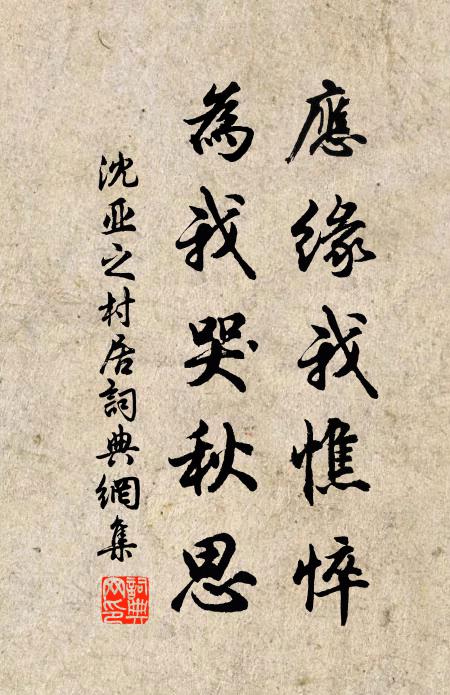 應緣我憔悴
為我哭秋思
沈亚之村居詞典網集
詞典网印